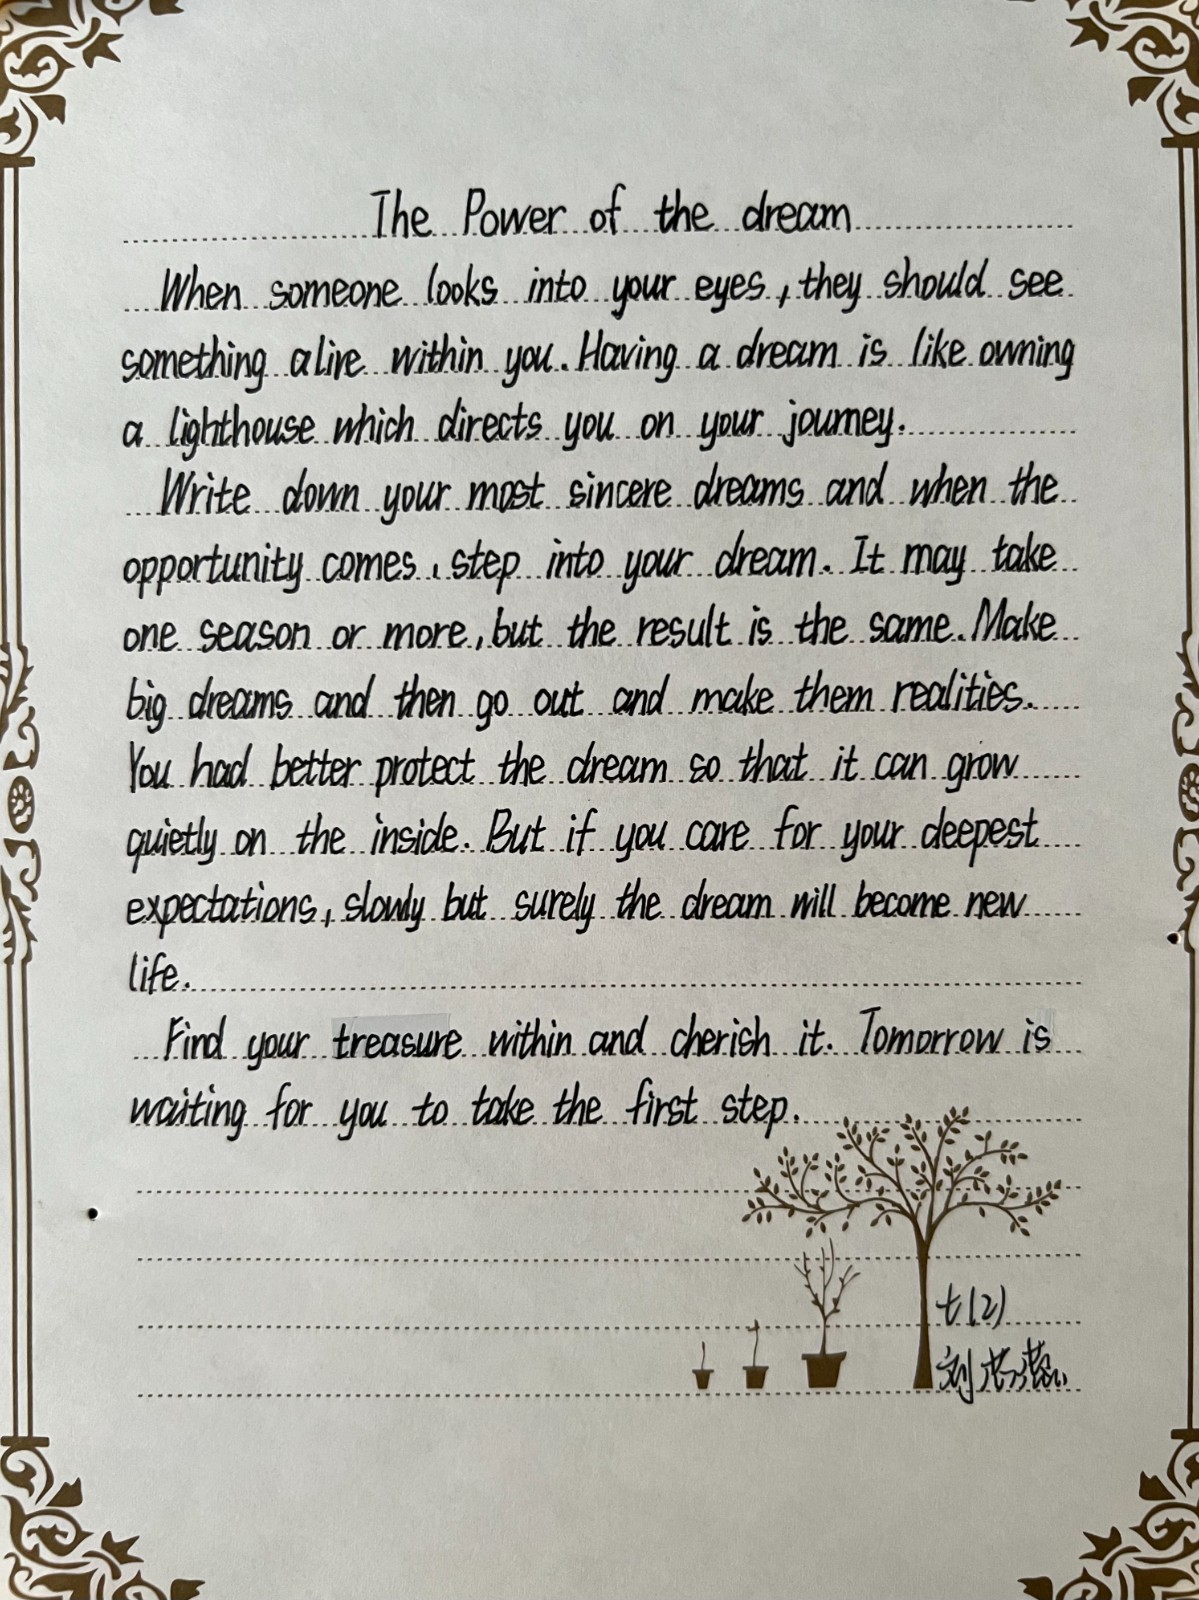 The Power of the dream
When someone looks into your eyes, they should see
something alive within you. Having a dream is like owning
a lighthouse which directs you on your journey.
Write down your most sincere dreams and when the
opportunity comes, step into your dream. It may take
one season or more, but the result is the same. Make
big dreams and then go out and make them realities.
You had better protect the dream so that it can grow
quietly on the inside. But if you care for your deepest
expectations, slowly but surely the dream will become new
life.
Find your treasure within and cherish it. Tomorrow is
waiting for you to take the first step.
七(2)
刘